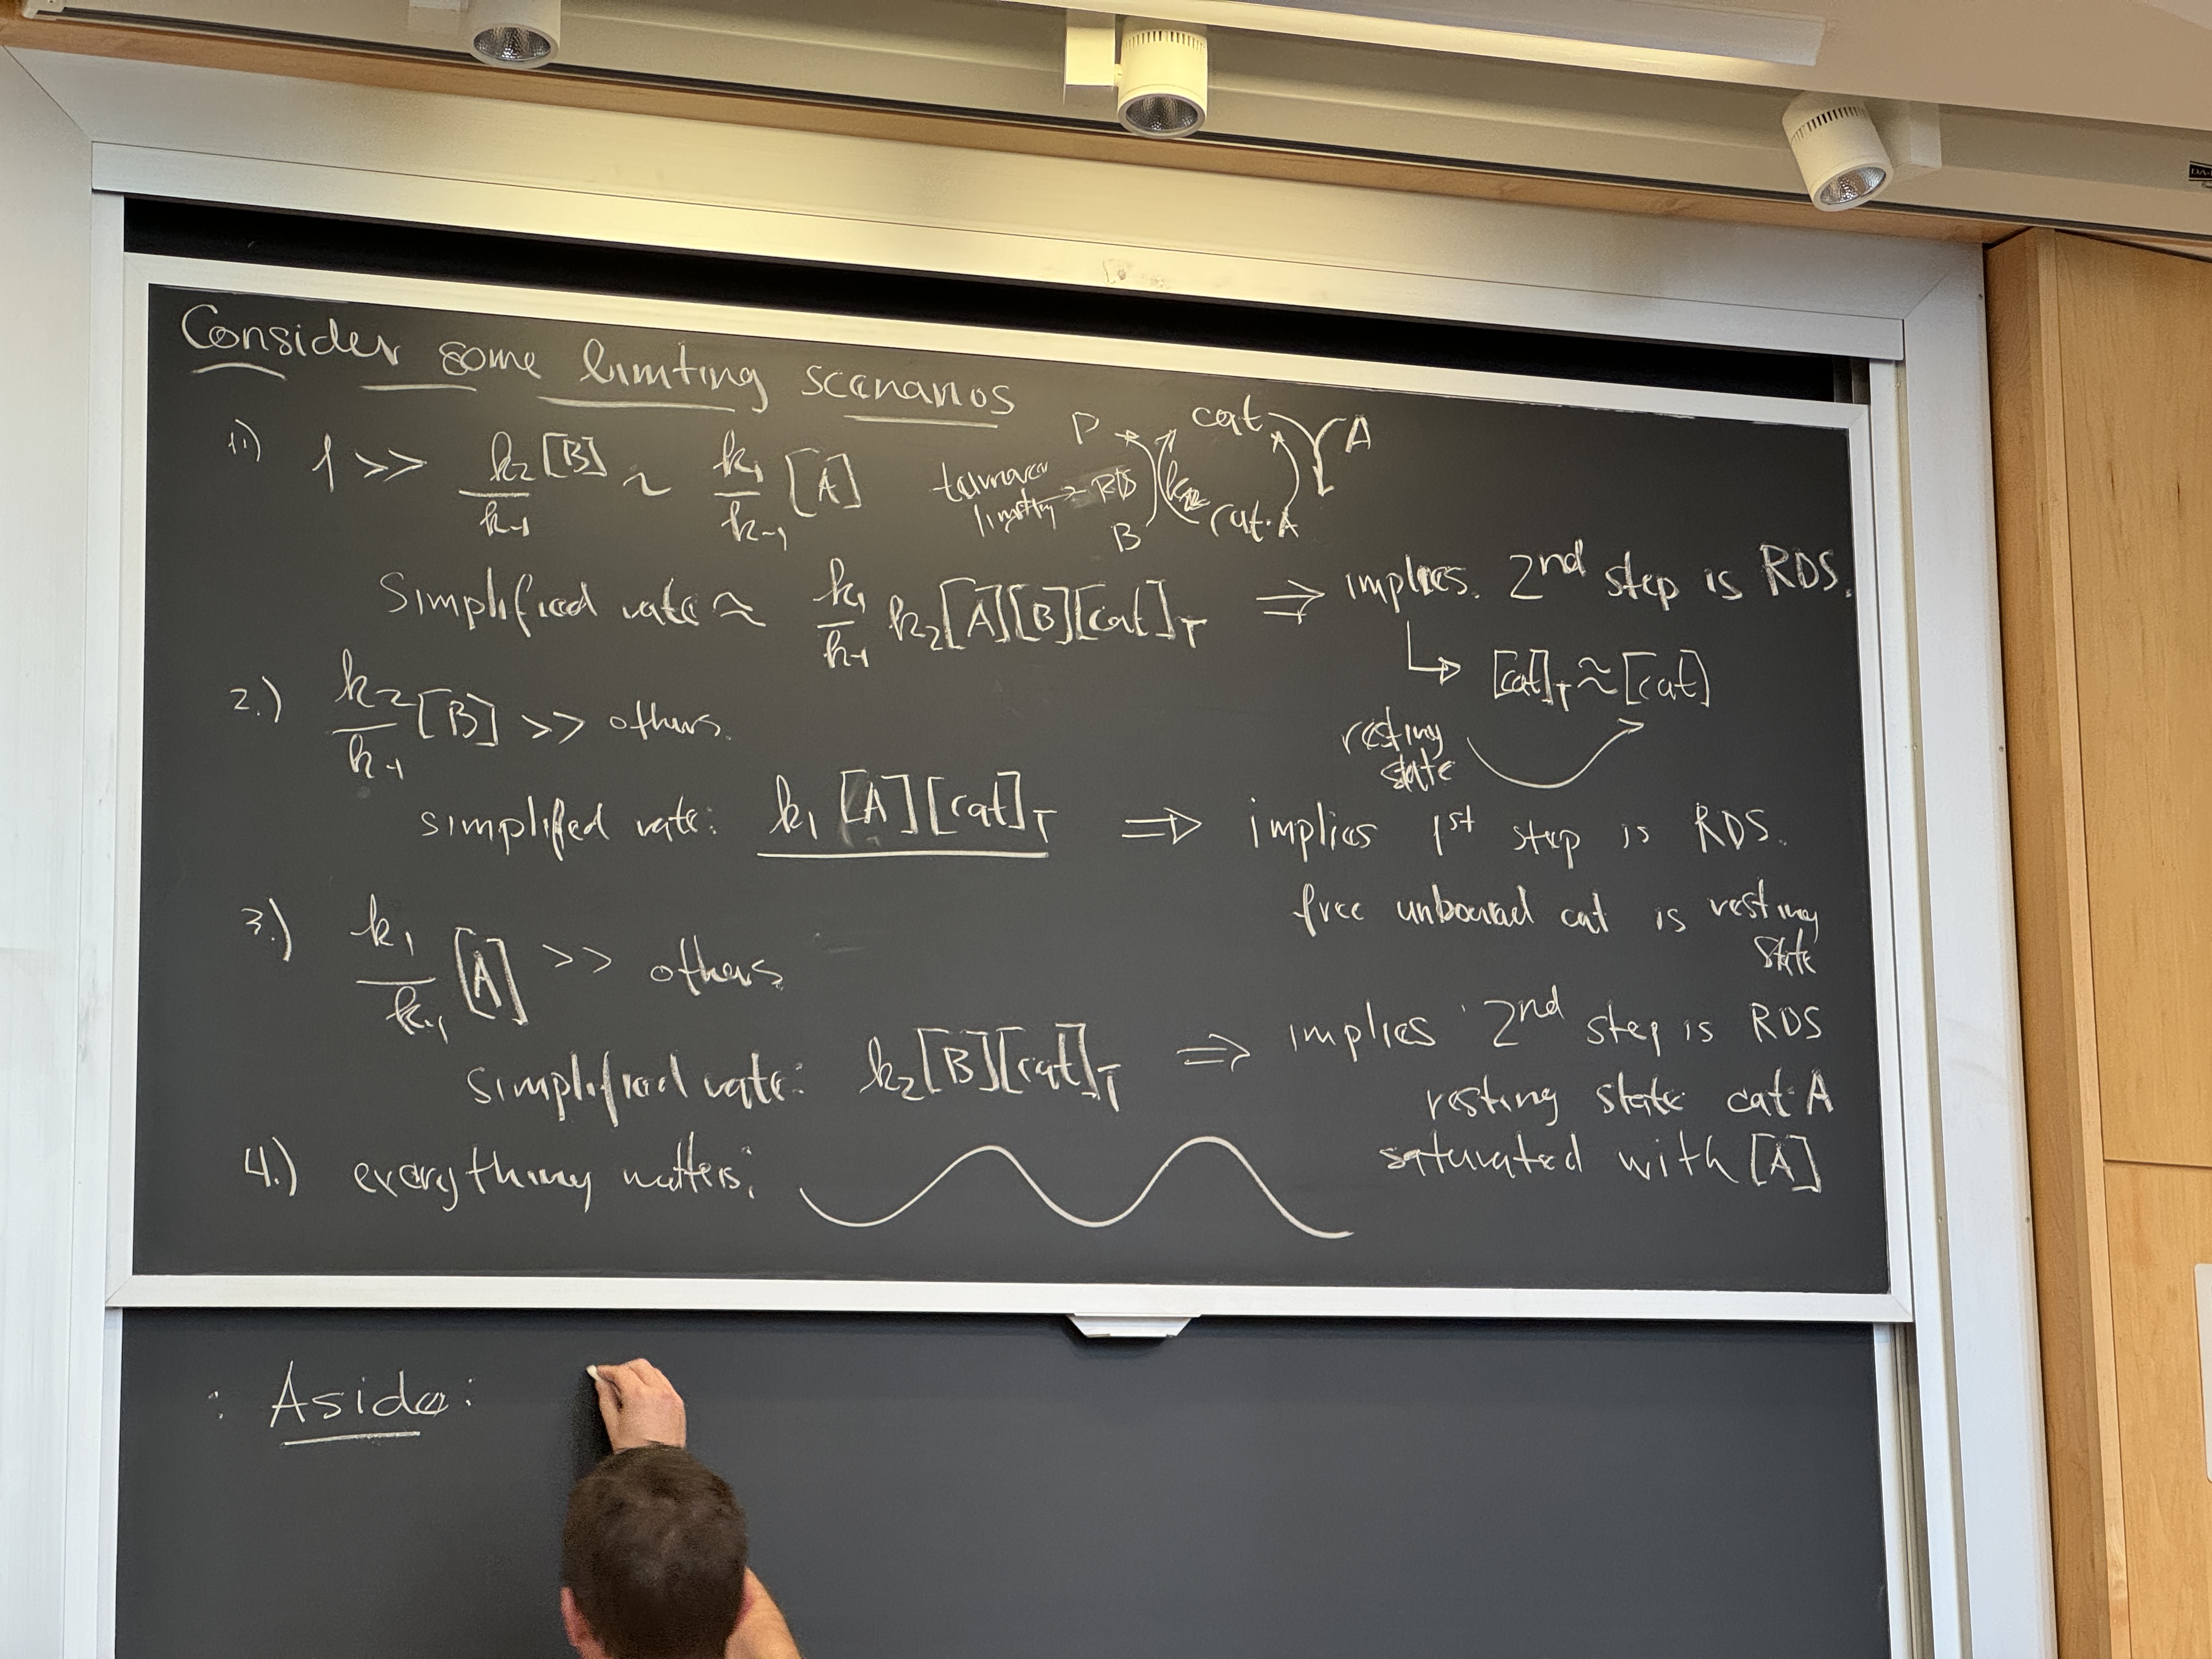 Consider some limiting scenarios
1.) 1 >> k2[B]/k-1 ~ k1/k-1 [A]
turnover limiting → RDS
P cat A
B k2 cat·A
Simplified rate ≈ k1/k-1 k2[A][B][cat]T ⇒ implies 2nd step is RDS.
↳ [cat]T ≈ [cat]
resting state
2.) k2/k-1 [B] >> others.
simplifed rate: k1[A][cat]T ⇒ implies 1st step is RDS.
free unbound cat is resting state
3.) k1/k-1 [A] >> others
simplified rate: k2[B][cat]T ⇒ implies 2nd step is RDS
resting state cat·A
saturated with [A]
4.) everything matters:
: Aside: